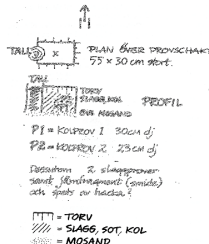 TALL
PLAN ÖVER PROVSCHAKT
55 x 30 cm stort.
TALL
TORV
SLAGG, KOL
MOSAND
PROFIL
P1 = KOLPROV 1 30cm dj
P2 = KOLPROV 2 23cm dj
Dessutom 2 slaggprover
samt järnfragment (smide)
och spets av hacka?
= TORV
= SLAGG, SOT, KOL
= MOSAND